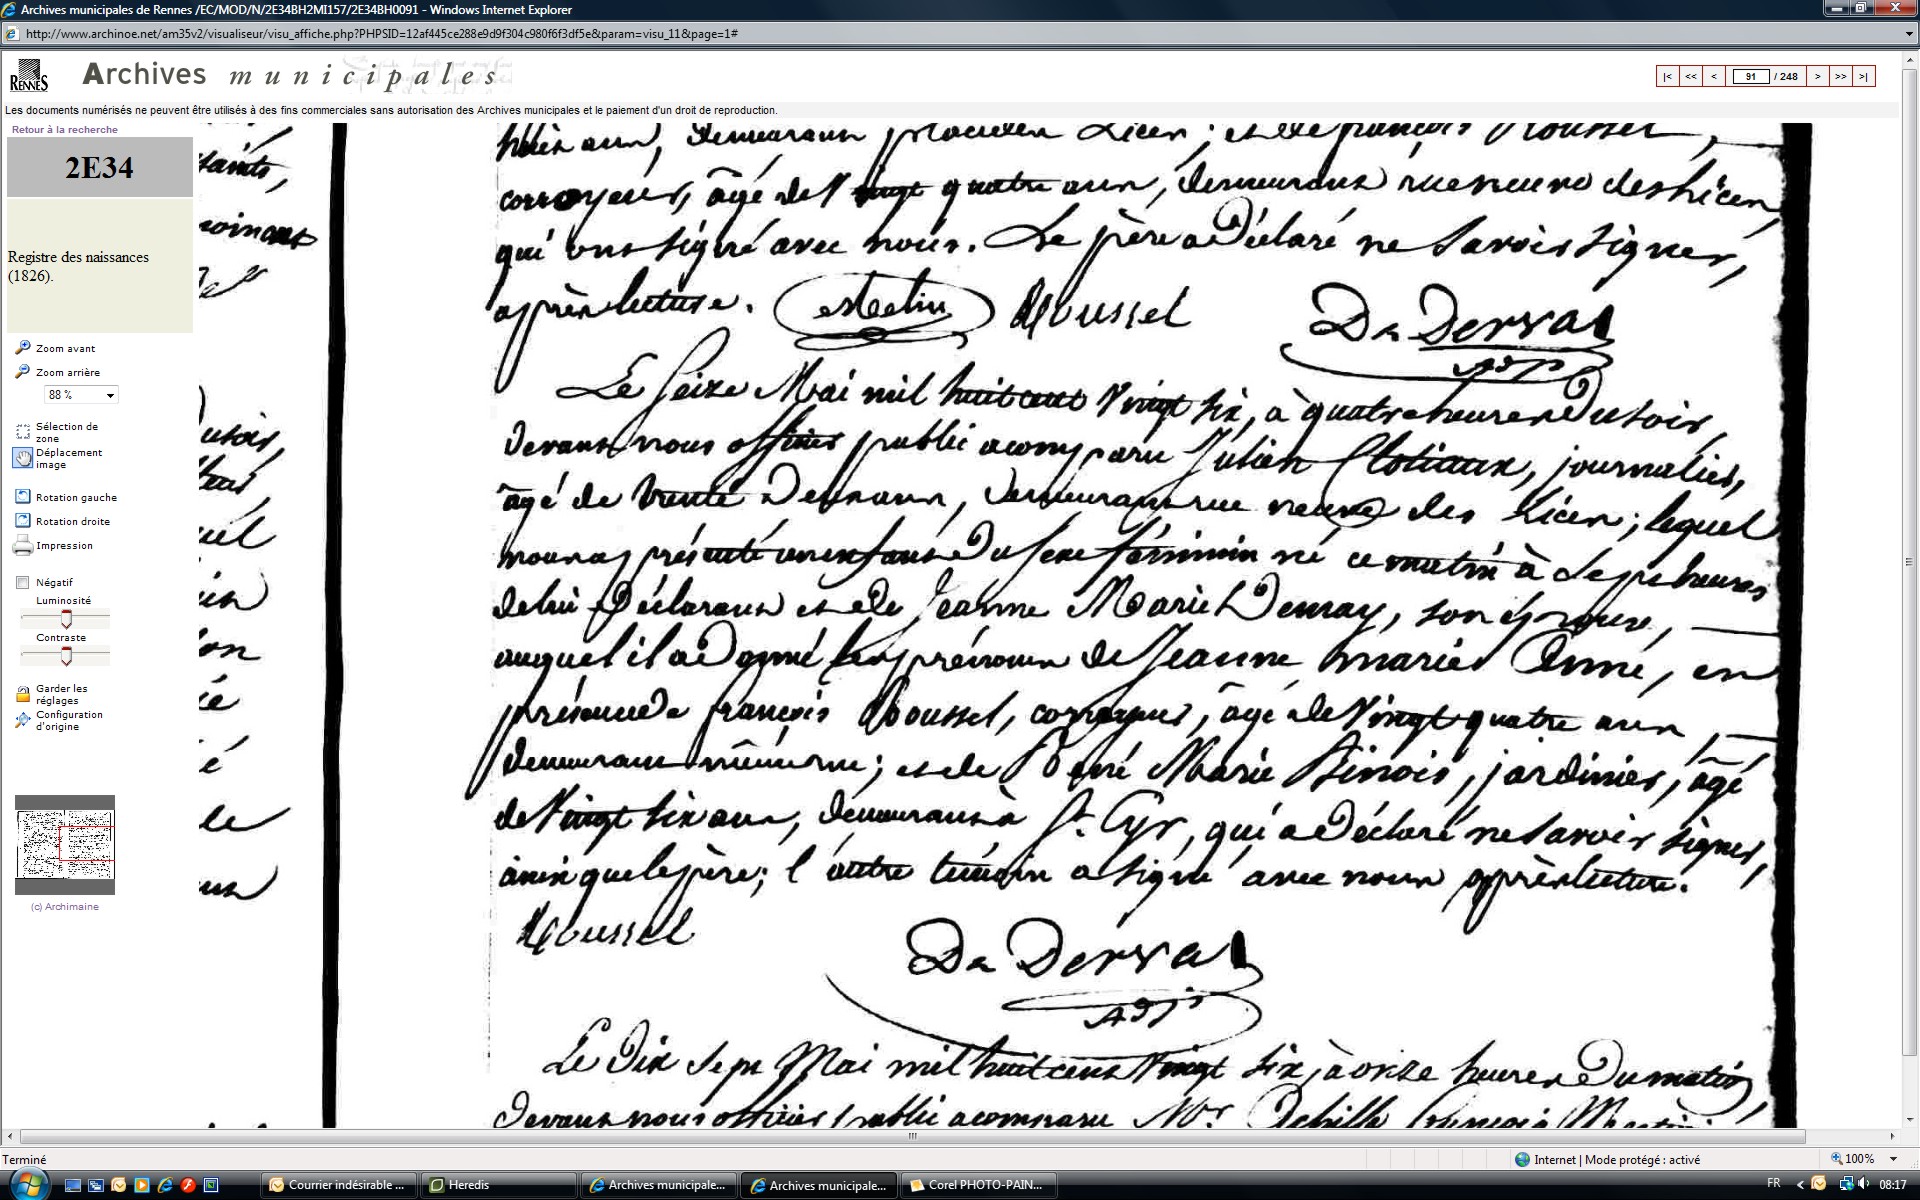 Archives municipales de Rennes /EC/MOD/N/2E34BH2MI157/2E34BH0091 - Windows Internet Explorer
http://www.archinoe.net/am35v2/visualiseur/visu_affiche.php?PHPSID=12af445ce288e9d9f304c980f6f3df5e&param=visu_11&page=1#
RENNES Archives municipales
|< << < 91 / 248 > >> >|
Les documents numérisés ne peuvent être utilisés à des fins commerciales sans autorisation des Archives municipales et le paiement d'un droit de reproduction.
Retour à la recherche
2E34
Registre des naissances
(1826).
Zoom avant
Zoom arrière
88 %
Sélection de
zone
Déplacement
image
Rotation gauche
Rotation droite
Impression
Négatif
Luminosité
Contraste
Garder les
réglages
Configuration
d'origine
(c) Archimaine
ans, demeurant place des Lices; et de françois Roussel,
corroyeur, âgé de Vingt quatre ans, demeurant rue neuve des Lices,
qui ont signé avec nous. Le père a Déclaré ne Savoir Signer,
après lecture. Roussel De Derval
Adjt
Le Seize Mai mil huit cent Vingt six, à quatre heures Du soir,
Devant nous officier public a comparu Julien Clotiaux, journalier,
âgé de trente Deux ans, demeurant rue neuve des Lices; lequel
nous a présenté un enfant Du Sexe féminin né ce matin à Sept heures
de lui Déclarant et de Jeanne Marie Denray, son épouse,
auquel il a Donné les prénoms de Jeanne marie Anne, en
présence De françois Roussel, corroyeur, âgé de Vingt quatre ans
demeurant même rue; et de René Marie Sinois, jardinier, âgé
de Vingt six ans, demeurant à St. Cyr, qui a Déclaré ne Savoir signer,
ainsi que le père; l'autre témoin a signé avec nous après lecture.
Roussel
De Derval
Adjt
Le Dix Sept Mai mil huit cent Vingt six, à onze heures Du matin,
Devant nous officier public a comparu Mr. Achille françois
Terminé
Internet | Mode protégé : activé
100%
Courrier indésirable ...
Heredis
Archives municipale...
Archives municipale...
Corel PHOTO-PAIN...
FR
08:17